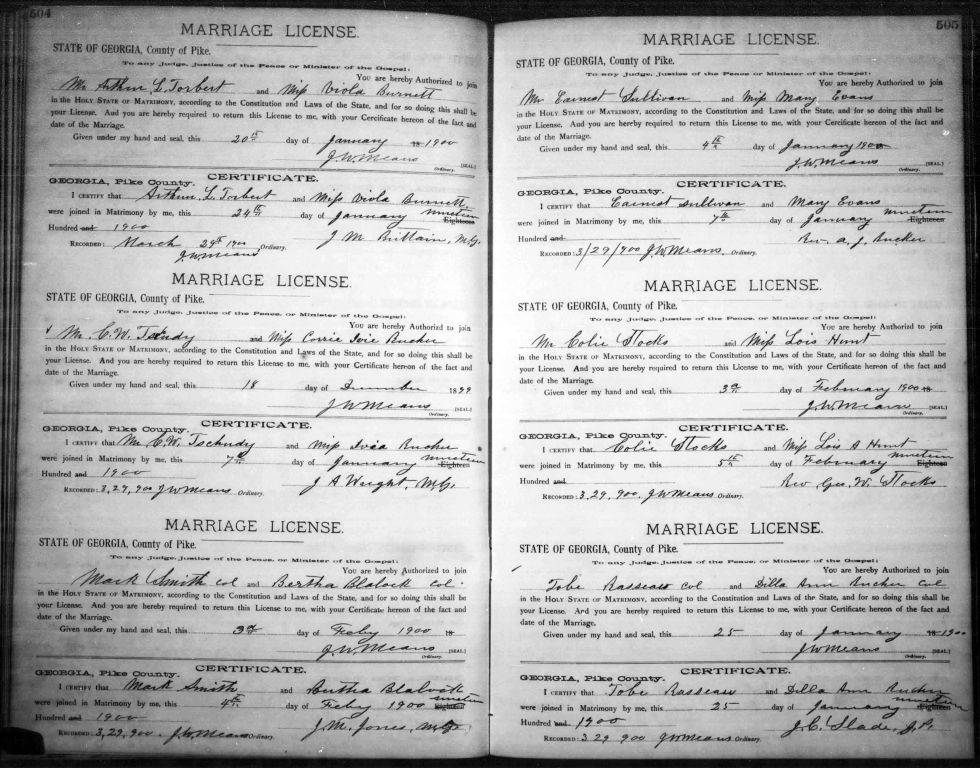 504
MARRIAGE LICENSE.
STATE OF GEORGIA, County of Pike.
To any Judge, Justice of the Peace or Minister of the Gospel:
You are hereby Authorized to join
Mr Arthur L. Torbert and Miss Viola Burnett
in the HOLY STATE OF MATRIMONY, according to the Constitution and Laws of the State, and for so doing this shall be
your License. And you are hereby required to return this License to me, with your Certificate hereon of the fact and
date of the Marriage.
Given under my hand and seal, this 20th day of January 18 1900
J.W. Means [SEAL.]
Ordinary.
CERTIFICATE.
GEORGIA, Pike County.
I CERTIFY that Arthur L. Torbert and Miss Viola Burnett
were joined in Matrimony by me, this 24th day of January nineteen Eighteen
Hundred and 1900
J M Brittain, M.G.
RECORDED: March 29th 1900 Ordinary.
J.W. Means
MARRIAGE LICENSE.
STATE OF GEORGIA, County of Pike.
To any Judge, Justice of the Peace, or Minister of the Gospel:
You are hereby Authorized to join
Mr. C.W. and Miss Corrie Rucker
in the HOLY STATE OF MATRIMONY, according to the Constitution and Laws of the State, and for so doing this shall be
your License. And you are hereby required to return this License to me, with your Certificate hereon of the fact and
date of the Marriage.
Given under my hand and seal, this 18 day of December 1899
J W Means [SEAL.]
Ordinary.
CERTIFICATE.
GEORGIA, Pike County.
I CERTIFY that Mr C.W. Tschudy and Miss Rucker
were joined in Matrimony by me, this 7th day of January nineteen Eighteen
Hundred and 1900
J A Wright M.G.
RECORDED: 3,29,900 J W Means Ordinary.
MARRIAGE LICENSE.
STATE OF GEORGIA, County of Pike.
To any Judge, Justice of the Peace, or Minister of the Gospel:
You are hereby Authorized to join
Mark Smith col and Bertha Blalock col.
in the HOLY STATE OF MATRIMONY, according to the Constitution and Laws of the State, and for so doing this shall be
your License. And you are hereby required to return this License to me, with your Certificate hereon of the fact and
date of the Marriage.
Given under my hand and seal, this 3d day of Feby 1900 18
J.W. Means [SEAL.]
Ordinary.
CERTIFICATE.
GEORGIA, Pike County.
I CERTIFY that Mark Smith and Bertha Blalock
were joined in Matrimony by me, this 4th day of Feby 1900 nineteen Eighteen
Hundred and 1900
J.M. Jones, M.G.
RECORDED: 3,29,900. J W Means Ordinary.
505
MARRIAGE LICENSE.
STATE OF GEORGIA, County of Pike.
To any Judge, Justice of the Peace or Minister of the Gospel:
You are hereby Authorized to join
Mr Earnest Sullivan and Miss Mary Evans
in the HOLY STATE OF MATRIMONY, according to the Constitution and Laws of the State, and for so doing this shall be
your License. And you are hereby required to return this License to me, with your Certificate hereon of the fact and
date of the Marriage.
Given under my hand and seal, this 4th day of January 1900
J.W. Means [SEAL.]
Ordinary.
CERTIFICATE.
GEORGIA, Pike County.
I CERTIFY that Earnest Sullivan and Mary Evans
were joined in Matrimony by me, this 7th day of January nineteen Eighteen
Hundred and
Rev. A. J. Rucker
RECORDED: 3/29/900 J.W. Means. Ordinary.
MARRIAGE LICENSE.
STATE OF GEORGIA, County of Pike.
To any Judge, Justice of the Peace, or Minister of the Gospel:
You are hereby Authorized to join
Mr Colie Stocks and Miss Lois Hunt
in the HOLY STATE OF MATRIMONY, according to the Constitution and Laws of the State, and for so doing this shall be
your License. And you are hereby required to return this License to me, with your Certificate hereon of the fact and
date of the Marriage.
Given under my hand and seal, this 3d day of February 1900 18
J.W. Means [SEAL.]
Ordinary.
CERTIFICATE.
GEORGIA, Pike County.
I CERTIFY that Colie Stocks and Miss Lois A Hunt
were joined in Matrimony by me, this 5th day of February nineteen Eighteen
Hundred and
Rev Geo. W. Stocks
RECORDED: 3,29,900. J W Means Ordinary.
MARRIAGE LICENSE.
STATE OF GEORGIA, County of Pike.
To any Judge, Justice of the Peace, or Minister of the Gospel:
You are hereby Authorized to join
Tobe Rasseau Col and Dilla Ann Rucker Col
in the HOLY STATE OF MATRIMONY, according to the Constitution and Laws of the State, and for so doing this shall be
your License. And you are hereby required to return this License to me, with your Certificate hereon of the fact and
date of the Marriage.
Given under my hand and seal, this 25 day of January 18 1900
J W Means [SEAL.]
Ordinary.
CERTIFICATE.
GEORGIA, Pike County.
I CERTIFY that Tobe Rasseau and Dilla Ann Rucker
were joined in Matrimony by me, this 25 day of January nineteen Eighteen
Hundred and 1900
J.C. Slade, J.P.
RECORDED: 3 29 900 J W Means Ordinary.